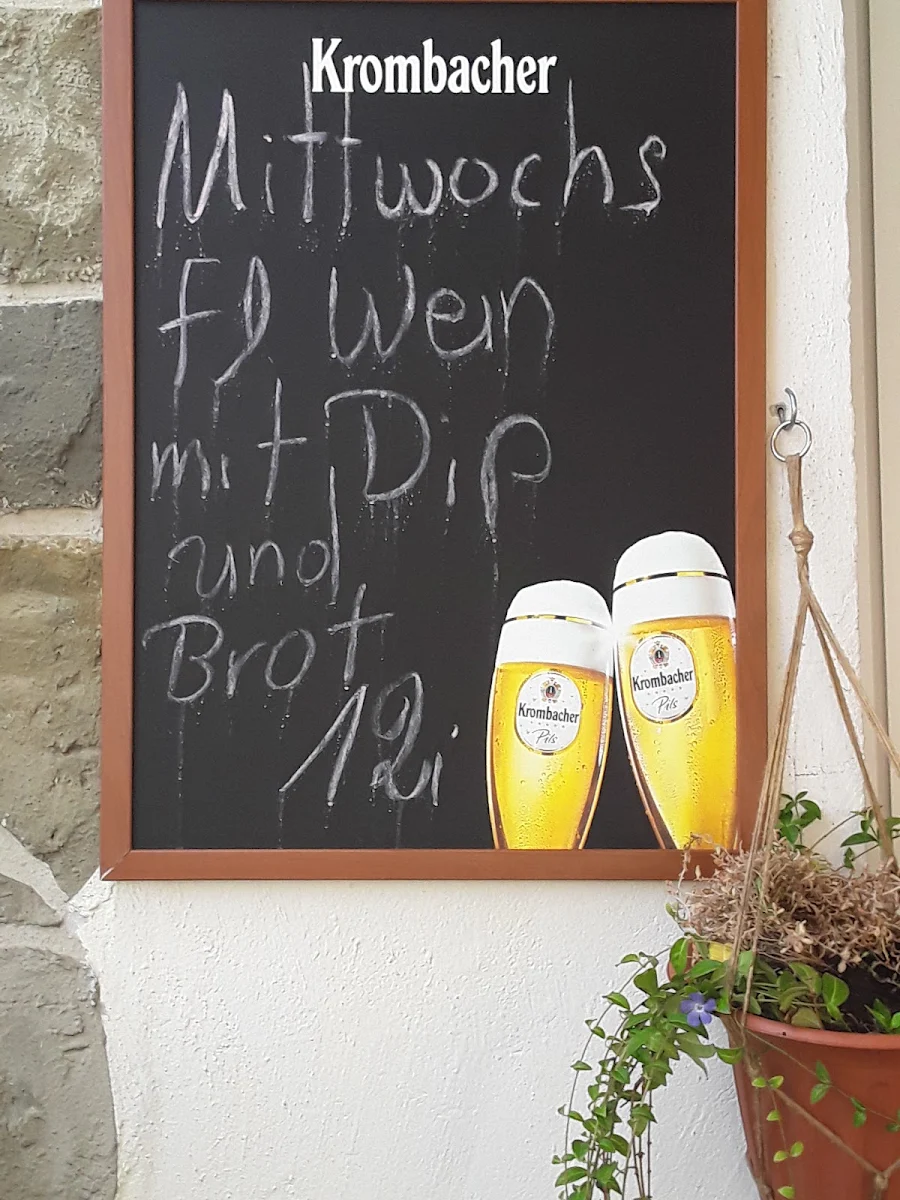 Krombacher
Mittwochs
Fl Wein
mit Dip
und
Brot
Krombacher
Pils
Krombacher
Pils